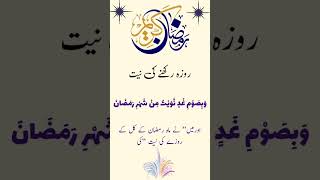 رمضان كريم
روزہ رکھنے کی نیت
وَبِصَوْمِ غَدٍ نَّوَيْتُ مِنْ شَهْرِ رَمَضَانَ
اور میں" نے ماہ رمضان کے کل کے
روزے کی نیت "کی